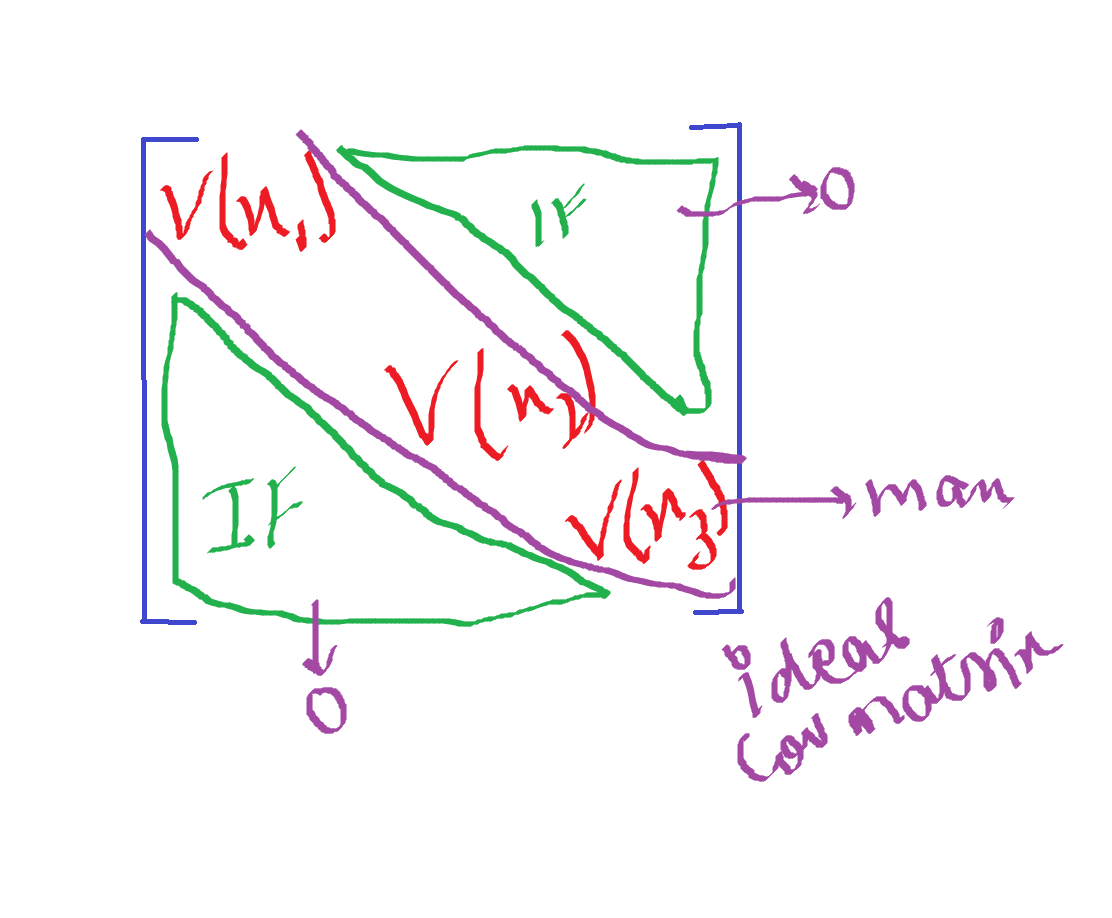 V(x₁)
IF
0
V(x₂)
IF
V(x₃)
max
0
ideal
Cov matrix